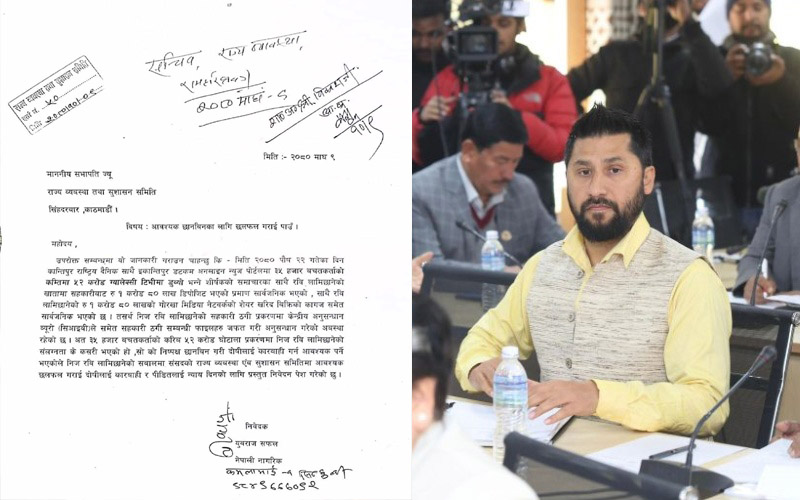 सचिव, राज्य व्यवस्था,
२०८०।माघ - ९
राज्य व्यवस्था तथा सुशासन समिति
दर्ता नं. ५०
मिति २०८०।१०।०९
मिति :- २०८० माघ ९
माननीय सभापति ज्यू
राज्य व्यवस्था तथा सुशासन समिति
सिंहदरवार ,काठमाडौं ।
विषय : आवश्यक छानविनका लागि छलफल गराई पाउँ ।
महोदय ,
उपरोक्त सम्बन्धमा यो जानकारी गराउन चाहन्छु कि - मिति २०८० पौष २२ गतेका दिन
कान्तिपुर राष्ट्रिय दैनिक साथै इकान्तिपुर डटकम अनलाइन न्युज पोर्टलमा ३५ हजार बचतकर्ताको
कम्तिमा ५२ करोड ग्यालेक्सी टिभीमा डुब्यो भन्ने शीर्षकको समाचारका साथै रवि लामिछानेको
खातामा सहकारीबाट रु १ करोड ८० लाख डिपोजिट भएको प्रमाण सार्वजनिक भएको , साथै रवि
लामिछानेको १ करोड ८० लाखको गोरखा मिडिया नेटवर्कको शेयर खरिद विक्रिको कागज समेत
सार्वजनिक भएको छ । तसर्थ निज रवि लामिछानेको सहकारी ठगी प्रकरणमा केन्द्रीय अनुसन्धान
व्यूरो (सिआइवी)ले समेत सहकारी ठगी सम्बन्धी फाइलहरु जफत गरी अनुसन्धान गरेको अवस्था
रहेको छ । अत ३५ हजार बचतकर्ताको करिव ५२ करोड घोटाला प्रकरणमा निज रवि लामिछानेको
संलग्नता के कसरी भएको हो ,सो को निष्पक्ष छानविन गरी दोषीलाई कारवाही गर्न आवश्यक पर्ने
भएकोले निज रवि लामिछानेको सवालमा संसदको राज्य व्यवस्था एंव सुशासन समितिमा आवश्यक
छलफल गराई दोषीलाई कारवाही र पीडितलाई न्याय दिनको लागि प्रस्तुत निवेदन पेश गरेको छु ।
निवेदक
युवराज सफल
नेपाली नागरिक
कमलामाई - ५ सिन्धुली